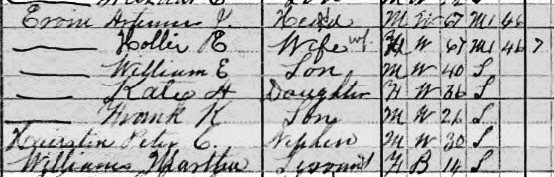 Head M W 67 M1 46
Hollie E Wife W 67 M1 46 7
William E Son M W 40 S
Kate H Daughter F W 36 S
Frank K Son M W 26 S
Peter C. Nephew M W 30 S
Williams Martha Servant F B 14 S